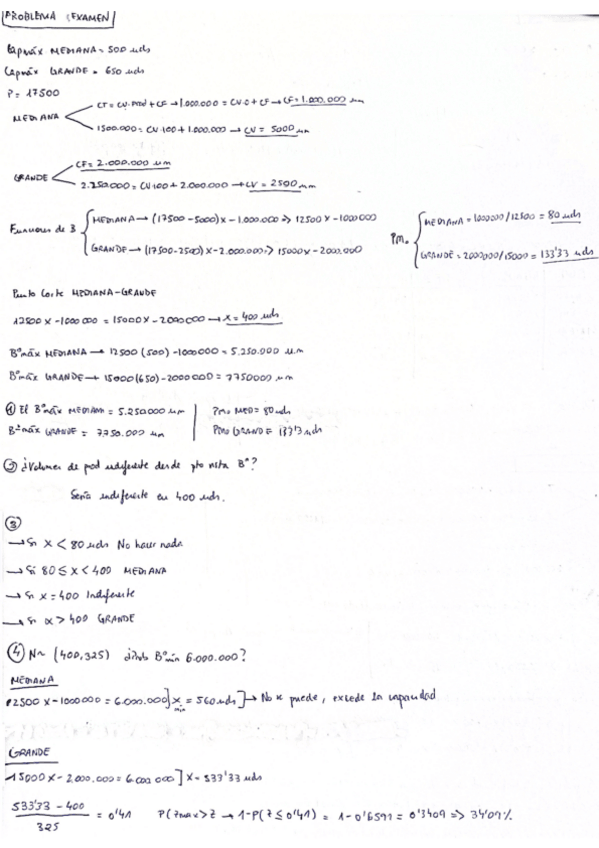 PROBLEMA (EXAMEN)
Capmáx MEDIANA = 500 uds
Capmáx GRANDE = 650 uds
P = 17500
MEDIANA
CT = CV·prod + CF → 1.000.000 = CV·0 + CF → CF = 1.000.000 um
1500.000 = CV·100 + 1.000.000 → CV = 5000 um
GRANDE
CF = 2.000.000 um
2.250.000 = CV·100 + 2.000.000 → CV = 2500 um
Funciones de B
MEDIANA → (17500 - 5000)x - 1.000.000 => 12500x - 1000000
GRANDE → (17500 - 2500)x - 2.000.000 => 15000x - 2000.000
Pm.
MEDIANA = 1000000/12500 = 80 uds
GRANDE = 2000000/15000 = 133'33 uds
Punto Corte MEDIANA-GRANDE
12500x - 1000000 = 15000x - 2000000 → x = 400 uds
Bº máx MEDIANA → 12500 (500) - 1000000 = 5.250.000 u.m
Bº máx GRANDE → 15000 (650) - 2000000 = 7750000 um
① El Bº máx MEDIANA = 5.250.000 um
Bº máx GRANDE = 7.750.000 um
Pmo MED = 80 uds
Pmo GRANDE = 133'3 uds
② ¿Volumen de pod indiferente desde pto vista Bº?
Sería indiferente en 400 uds.
③
→ Si x < 80 uds No hacer nada
→ Si 80 ≤ x < 400 MEDIANA
→ Si x = 400 Indiferente
→ Si x > 400 GRANDE
④ N~ (400,325) Bº mín 6.000.000?
MEDIANA
12500x - 1000000 = 6.000.000] x mín = 560 uds] → No se puede, excede la capacidad
GRANDE
15000x - 2000.000 = 6.000.000] x = 533'33 uds
533'33 - 400 / 325 = 0'41 P(zmax > z → 1 - P(z ≤ 0'41) = 1 - 0'6591 = 0'3409 => 34'09%